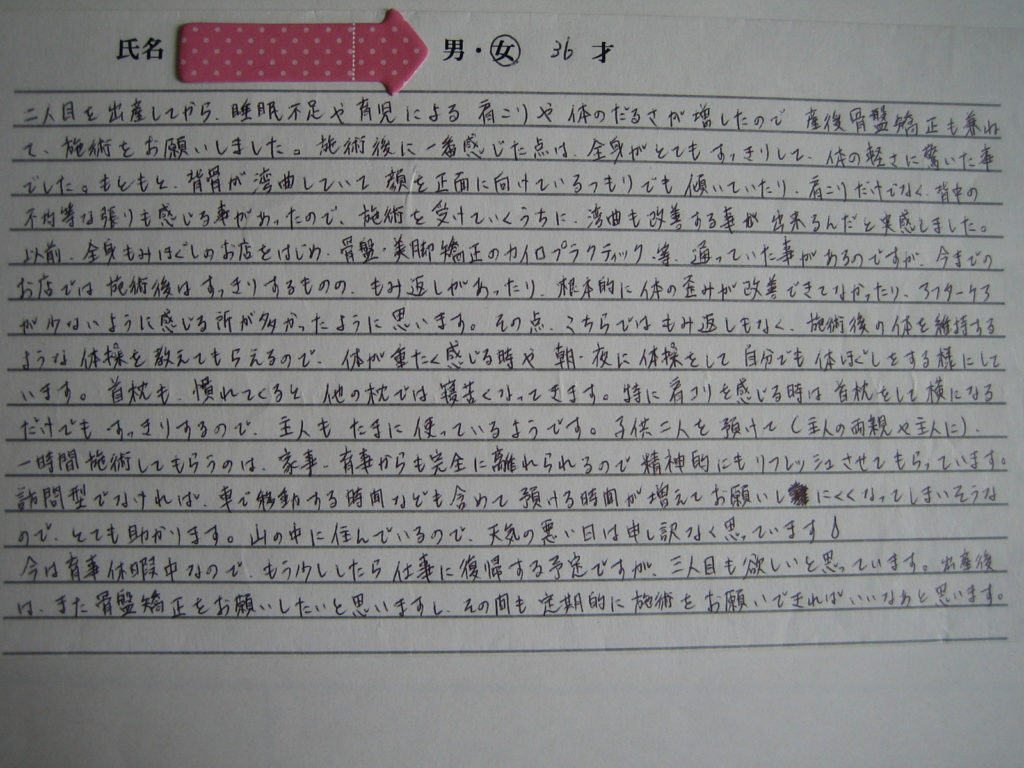 氏名 男・女 36 才
二人目を出産してから、睡眠不足や育児による 肩こりや 体のだるさが増したので 産後骨盤矯正も兼ね
て、施術をお願いしました。施術後に一番感じた点は、全身がとてもすっきりして、体の軽さに驚いた事
でした。もともと、背骨が湾曲していて 顔を正面に向けているつもりでも 傾いていたり、肩こりだけでなく、背中の
不均等な張りも感じる事があったので、施術を受けていくうちに、湾曲も改善する事が 出来るんだと実感しました。
以前、全身もみほぐしのお店をはじめ、骨盤・美脚矯正のカイロプラクティック、等、通っていた事があるのですが、今までの
お店では 施術後はすっきりするものの、もみ返しがあったり、根本的に体の歪みが改善できてなかったり、アフターケア
が少ないように感じる所が多かったように思います。その点、こちらではもみ返しもなく、施術後の体を維持する
ような体操を教えてもらえるので、体が重たく感じる時や 朝・夜に体操をして 自分でも体ほぐしをする様にして
います。首枕も、慣れてくると 他の枕では寝苦くなってきます。特に肩コリを感じる時は首枕をして横になる
だけでも すっきりするので、主人も たまに使っているようです。子供二人を預けて(主人の両親や主人に)、
一時間施術してもらうのは、家事・育事からも完全に離れられるので 精神的にもリフレッシュさせてもらっています。
訪問型でなければ、車で移動する時間なども含めて 預ける時間が増えてお願いし にくくなってしまいそうな
ので、とても助かります。山の中に住んでいるので、天気の悪い日は申し訳なく思っています
今は育事休暇中なので、もう少ししたら仕事に復帰する予定ですが、三人目も欲しいと思っています。出産後
は、また骨盤矯正をお願いしたいと思いますし、その間も定期的に施術をお願いできればいいなあと思います。